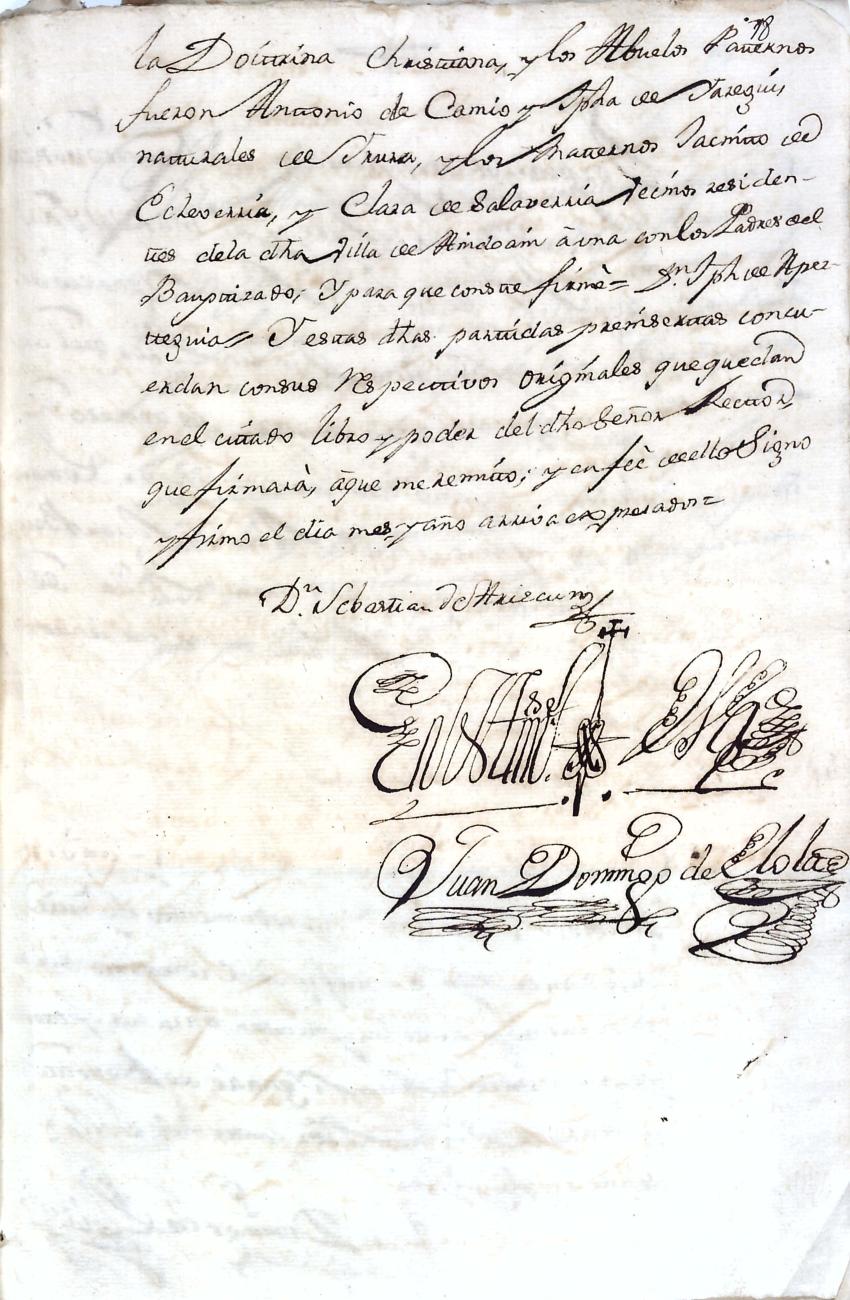 18
la Doctrina Christiana, y los Abuelos Paternos
fueron Antonio de Camio y Jpha de Jaregui,
naturales de Irura, y los Maternos Jacinto de
Echeverria, y Clara de Salaverria vecinos residen-
tes dela dha Villa de Andoain à una con los Padres del
Bauptizado; Y para que conste firmè = Dn. Jph de Aper-
tteguia // Y estas dhas partidas preinsertas concu-
erdan consus Respectivos originales que quedan
en el citado libro y poder del dho Señor Rector,
que firmarà, aque me remito; y en feè de ello Signo
y firmo el dia mes, y año arriva expresados =
Dn. Sebastian de Ariscun
En testimº de Vd.
Juan Domingo de Elola